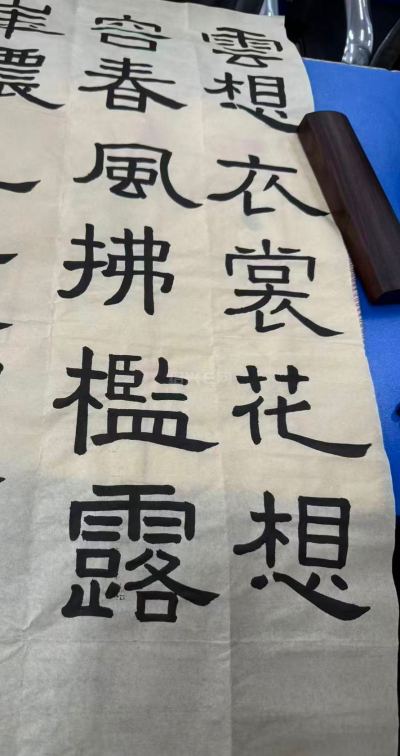 雲想衣裳花想
容春風拂檻露